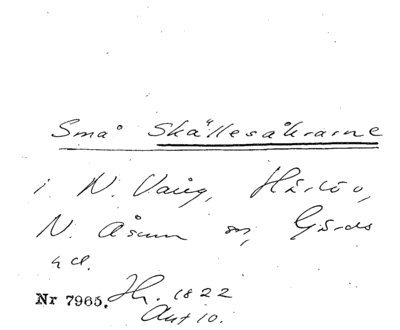 Små Skällesåkrarne
i N. Vång, Härlöv,
N. Åsum sn, Gärds
hd.
Nr 7965. Jh. 1822
Akt 10.